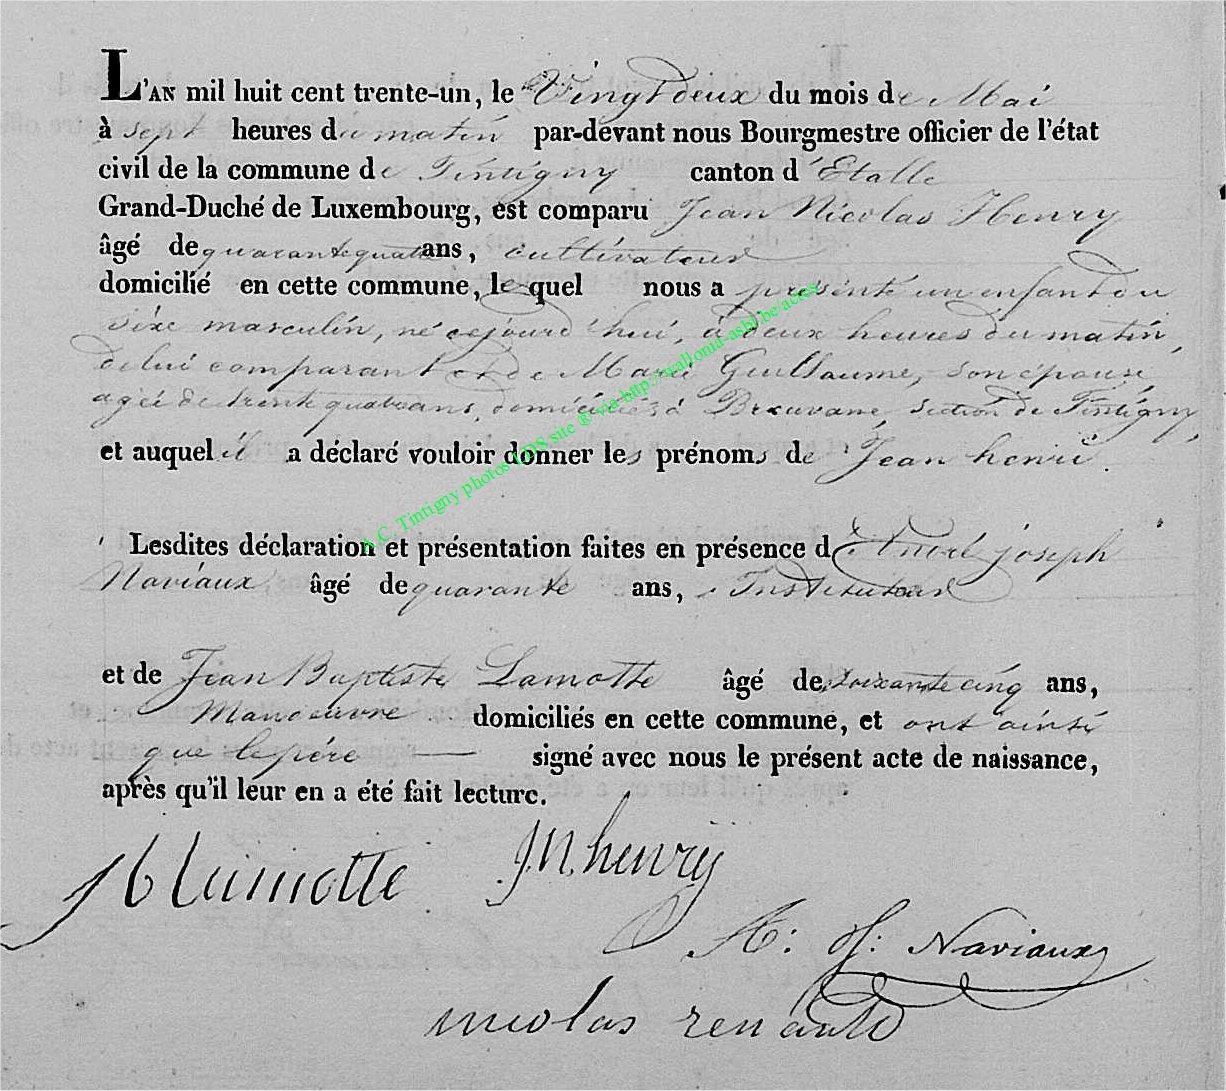 L'AN mil huit cent trente-un, le Vingt deux du mois de Mai
à sept heures du matin par-devant nous Bourgmestre officier de l'état
civil de la commune de Tintigny canton d'Etalle
Grand-Duché de Luxembourg, est comparu Jean Nicolas Henry
âgé de quarante quatre ans, cultivateur
domicilié en cette commune, le quel nous a présenté un enfant du
sèxe masculin, né cejourd'hui, à deux heures du matin,
de lui comparant et de Marie Guillaume, son épouse
agée de trente quatre ans, domiciliés à Breuvane, section de Tintigny,
et auquel il a déclaré vouloir donner les prénoms de Jean henri.
Lesdites déclaration et présentation faites en présence d'André joseph
Naviaux, âgé de quarante ans, Instituteur
et de Jean Baptiste Lamotte âgé de soixante cinq ans,
Manoeuvre domiciliés en cette commune, et ont ainsi
que le père signé avec nous le présent acte de naissance,
après qu'il leur en a été fait lecture.
J b lamotte J. N. henry
A: J: Naviaux
nicolas renauld
A.C. Tintigny photos LDS site ® via http://wallonia-asbl.be/actes